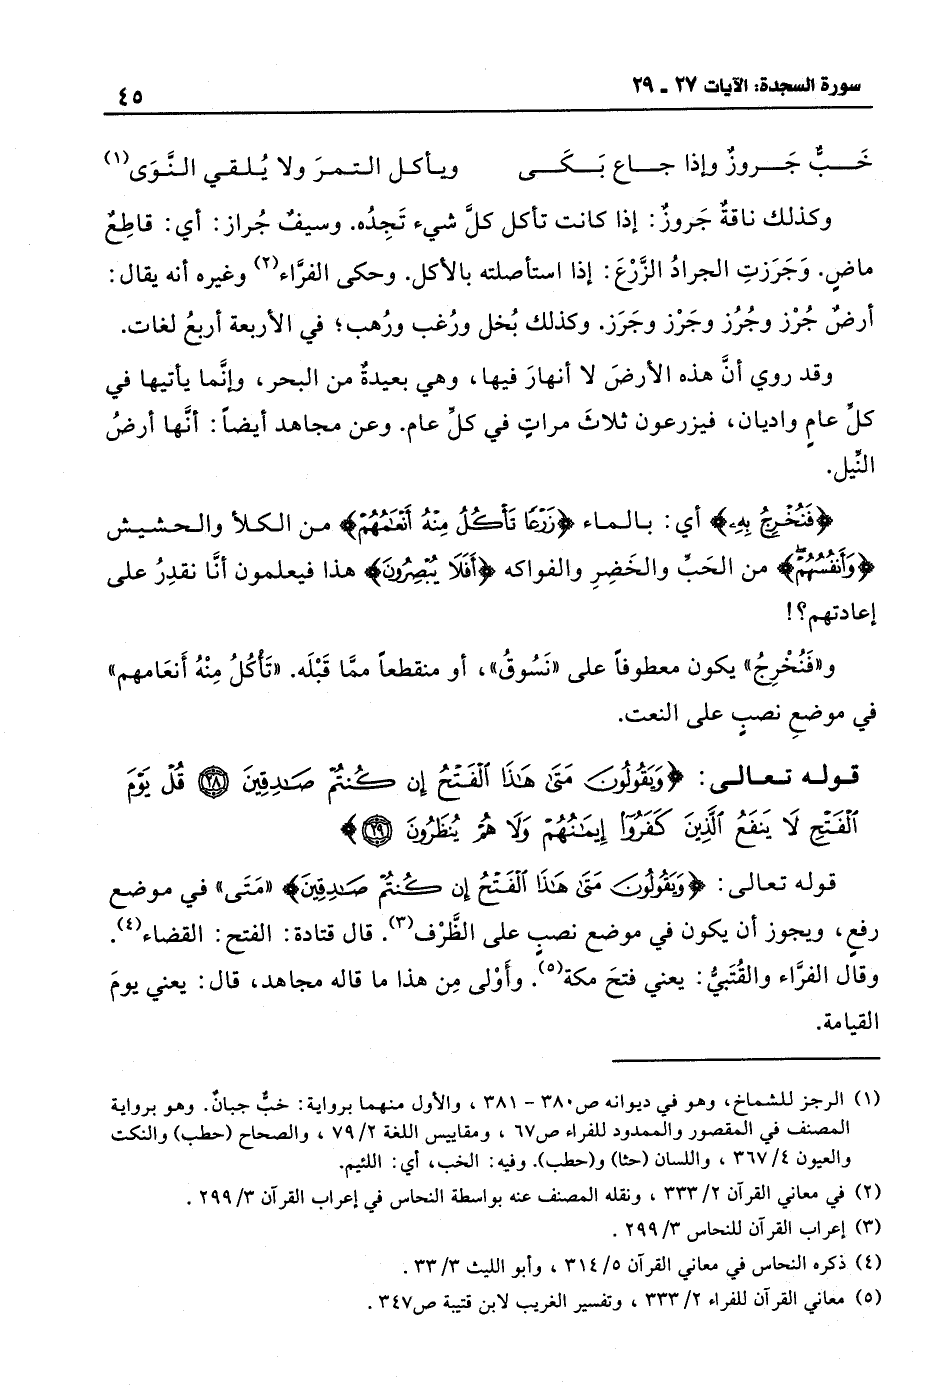 سورة السجدة: الآيات ٢٧ ـ ٢٩
٤٥
خَـــبٌّ جَـــروزٌ وإذا جـــاع بَـكَـــى ويـأكـل الـتـمـرَ ولا يُـلـقـي الـنَّـوَى(١)
وكذلك ناقةٌ جَروزٌ: إذا كانت تأكل كلَّ شيء تَجِدُه. وسيفٌ جُراز: أي: قاطِعٌ
ماضٍ. وَجَرَزتِ الجرادُ الزَّرْعَ: إذا استأصلته بالأكل. وحكى الفرَّاء(٢) وغيره أنه يقال:
أرضٌ جُرْز وجُرُز وجَرْز وجَرَز. وكذلك بُخل ورُغب ورُهب؛ في الأربعة أربعُ لغات.
وقد روي أنَّ هذه الأرضَ لا أنهارَ فيها، وهي بعيدةٌ من البحر، وإنَّما يأتيها في
كلِّ عامٍ واديان، فيزرعون ثلاثَ مراتٍ في كلِّ عام. وعن مجاهد أيضاً: أنَّها أرضُ
النِّيل.
﴿فَنُخْرِجُ بِهِۦ﴾ أي: بـالـماء ﴿زَرْعًا تَأْكُلُ مِنْهُ أَنْعَٰمُهُمْ﴾ مـن الـكـلأ والـحـشـيـش
﴿وَأَنفُسُهُمْۖ﴾ من الحَبِّ والخَضِرِ والفواكه ﴿أَفَلَا يُبْصِرُونَ﴾ هذا فيعلمون أنَّا نقدِرُ على
إعادتهم؟!
و«فَنُخْرِجُ» يكون معطوفاً على «نَسُوقُ»، أو منقطعاً ممَّا قَبْلَه. «تَأْكُلُ مِنْهُ أَنعَامهم»
في موضعِ نصبٍ على النعت.
قـولـه تـعـالـى: ﴿وَيَقُولُونَ مَتَىٰ هَٰذَا ٱلْفَتْحُ إِن كُنتُمْ صَٰدِقِينَ ٢٨ قُلْ يَوْمَ
ٱلْفَتْحِ لَا يَنفَعُ ٱلَّذِينَ كَفَرُوٓا۟ إِيمَٰنُهُمْ وَلَا هُمْ يُنظَرُونَ ٢٩﴾
قوله تعالى: ﴿وَيَقُولُونَ مَتَىٰ هَٰذَا ٱلْفَتْحُ إِن كُنتُمْ صَٰدِقِينَ﴾ «مَتَى» في موضع
رفعٍ، ويجوز أن يكون في موضع نصبٍ على الظَّرْف(٣). قال قتادة: الفتح: القضاء(٤).
وقال الفرَّاء والقُتَبيُّ: يعني فتحَ مكة(٥). وأَوْلى مِن هذا ما قاله مجاهد، قال: يعني يومَ
القيامة.
(١) الرجز للشماخ، وهو في ديوانه ص٣٨٠ - ٣٨١ ، والأول منهما برواية: خبٌّ جبانٌ. وهو برواية
المصنف في المقصور والممدود للفراء ص٦٧ ، ومقاييس اللغة ٧٩/٢ ، والصحاح (حطب) والنكت
والعيون ٣٦٧/٤ ، واللسان (حثا) و(حطب). وفيه: الخب، أي: اللئيم.
(٢) في معاني القرآن ٣٣٣/٢ ، ونقله المصنف عنه بواسطة النحاس في إعراب القرآن ٢٩٩/٣ .
(٣) إعراب القرآن للنحاس ٢٩٩/٣ .
(٤) ذكره النحاس في معاني القرآن ٣١٤/٥ ، وأبو الليث ٣٣/٣ .
(٥) معاني القرآن للفراء ٣٣٣/٢ ، وتفسير الغريب لابن قتيبة ص٣٤٧ .